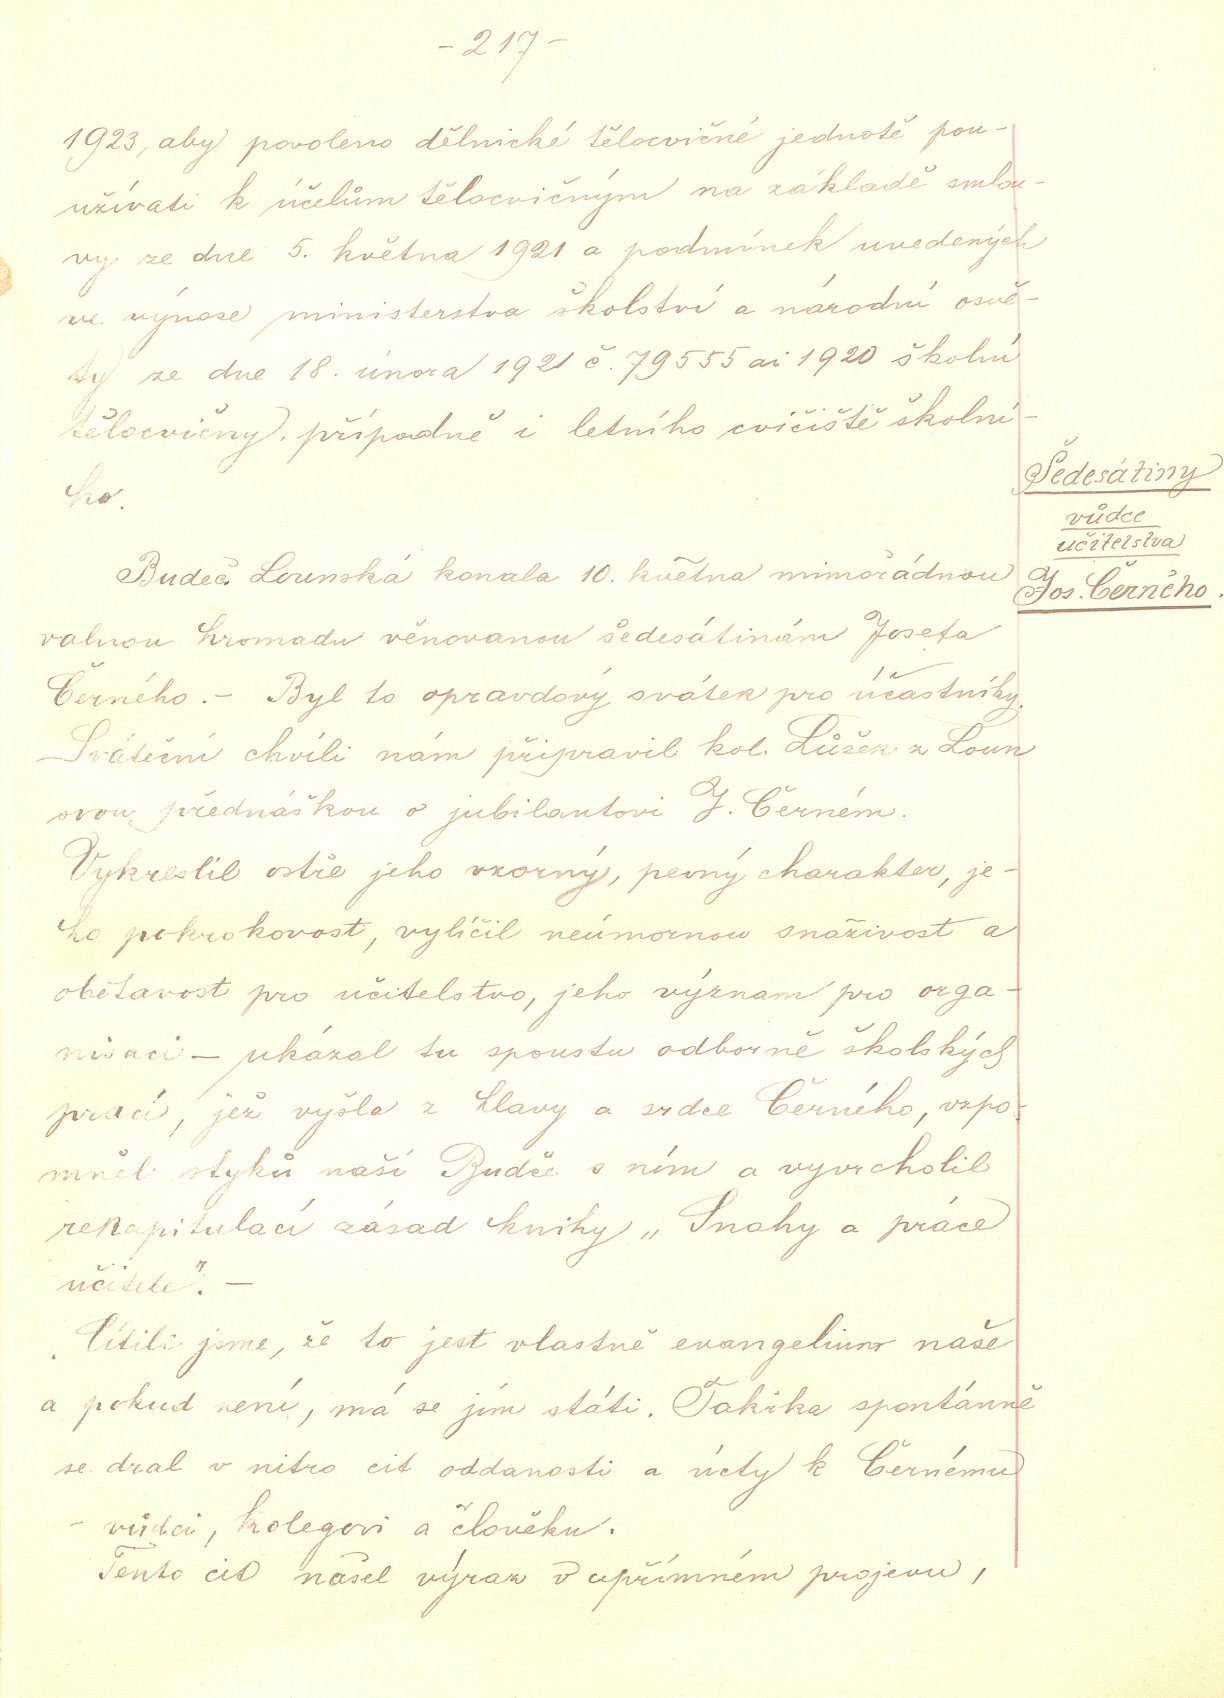 - 217 -
1923, aby povoleno dělnické tělocvičné jednotě pou-
užívati k účelům tělocvičným na základě smlou-
vy ze dne 5. května 1921 a podmínek uvedených
ve výnose ministerstva školství a národní osvě-
ty ze dne 18. února 1921 č. 79555 ai 1920 školní
tělocvičny, případně i letního cvičiště školní-
ho.
Šedesátiny
vůdce
učitelstva
Jos. Černého.
Budeč Lounská konala 10. května mimořádnou
valnou hromadu věnovanou šedesátinám Josefa
Černého. - Byl to opravdový svátek pro účastníky.
Sváteční chvíli nám připravil kol. Lůžek z Loun
svou přednáškou o jubilantovi J. Černém.
Vykreslil ostře jeho vzorný, pevný charakter, je-
ho pokrokovost, vylíčil neúmornou snaživost a
obětavost pro učitelstvo, jeho význam pro orga-
nisaci - ukázal tu spoustu odborně školských
prací, jež vyšla z hlavy a srdce Černého, vzpo-
mněl styků naší Budče s ním a vyvrcholil
rekapitulací zásad knihy „Snahy a práce
učitele". -
Cítili jsme, že to jest vlastně evangelium naše
a pokud není, má se jím státi. Takřka spontánně
se dral v nitro cit oddanosti a úcty k Černému
- vůdci, kolegovi a člověku.
Tento cit našel výraz v upřímném projevu,